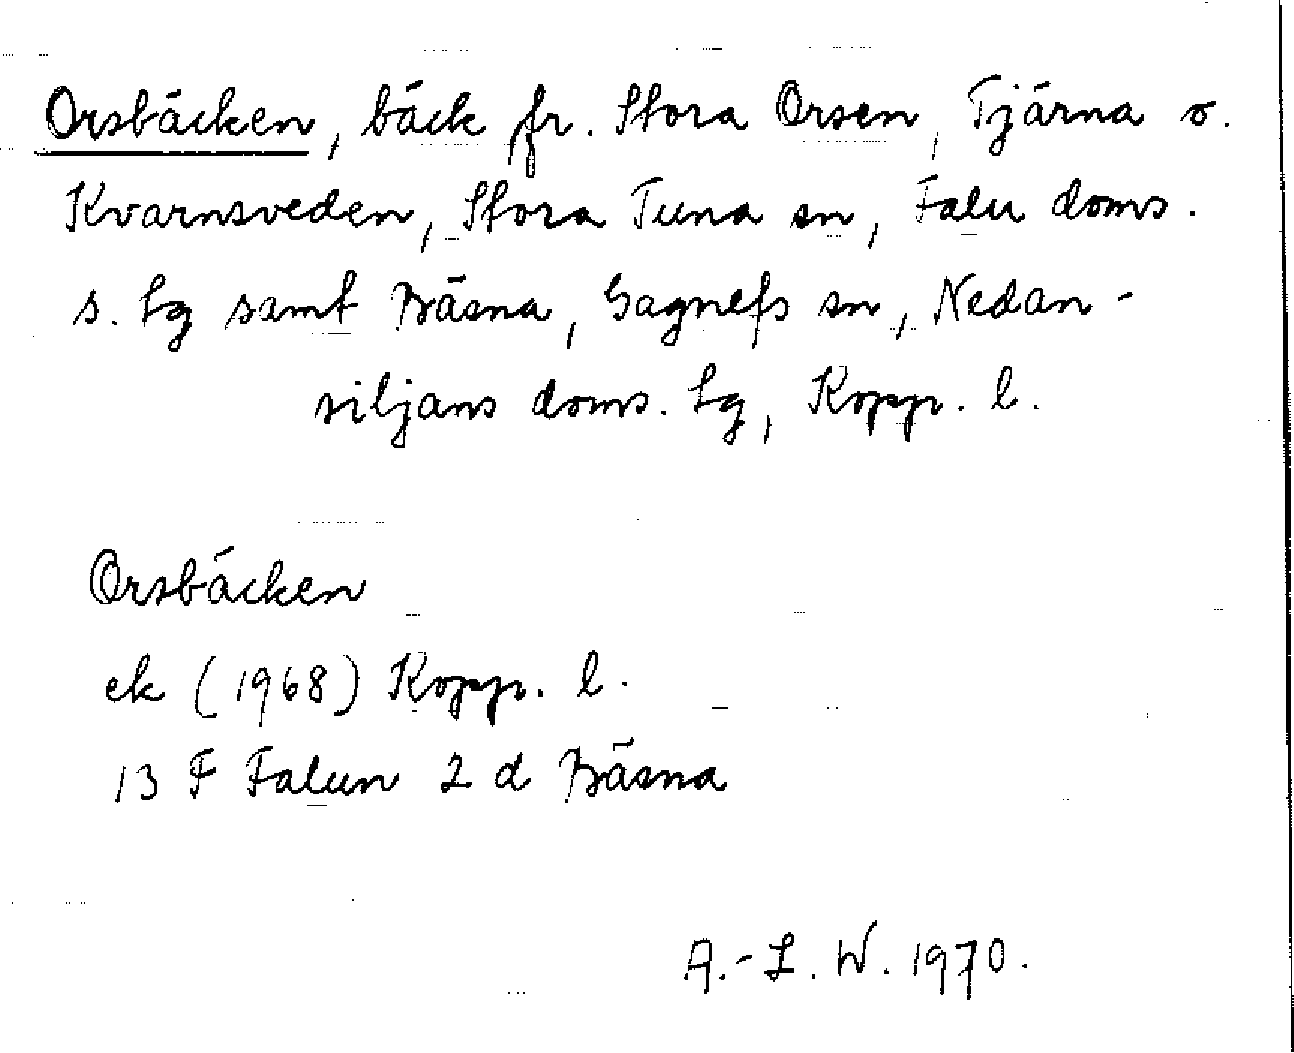 Orsbäcken, bäck fr. Stora Orsen, Tjärna o.
Kvarnsveden, Stora Tuna sn, Falu doms.
s. tg samt Bäsna, Gagnefs sn, Nedan-
siljans doms. tg, Kopp. l.
Orsbäcken
ek (1968) Kopp. l.
13 F Falun 2 d Bäsna
A.-L. W. 1970.